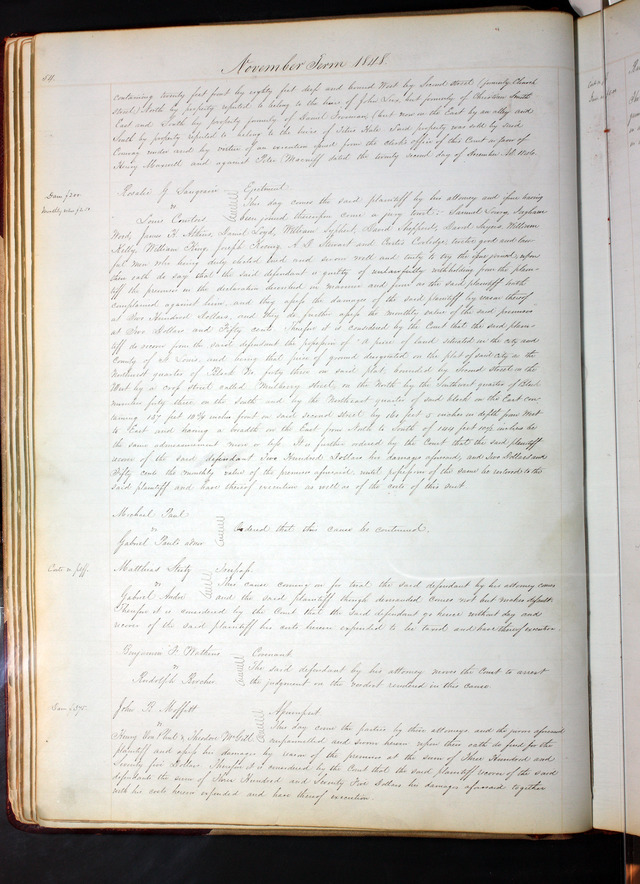 64.
November Term 1848.
containing seventy feet front by eighty feet deep and bound West by Second street (formerly Church
street) North by property reputed to belong to the heirs of John , but formerly of Christian Smith
East and South by property formerly of Daniel but now on the East by an alley and
South by property reputed to belong to the heirs of Titus Hale. Said property was sold by said
Conway under and by virtue of an execution issued from the clerk's office of this Court in favor of
Henry Maxwell and against Peter dated the twenty second day of November A.D.
Dam $200.
Monthly value $2.50
Rosalie G. Saugrain
vs
Louis Courtois
Ejectment
This day comes the said plaintiff by his attorney and issue having
been joined thereupon came a jury to wit: Samuel , Ingham
Wood, James H. Atkins, Daniel Loyd, William , David Shepherd, David , William
Kelly, William King, Joseph , A. D. Stewart and Curtis , twelve good and law-
ful men who being duly elected tried and sworn well and truly to try the issue joined upon
their oath do say that the said defendant is guilty of unlawfully withholding from the plain-
tiff the premises in the declaration described in manner and form as the said plaintiff hath
complained against him, and they assess the damages of the said plaintiff by reason thereof
at Two Hundred Dollars, and they do further assess the monthly value of the said premises
at Two Dollars and Fifty cents. Therefore it is considered by the Court that the said plain-
tiff do recover from the said defendant the possession of "A piece of land situated in the city and
County of St. Louis, and being that piece of ground designated on the plat of said city as the
Northwest quarter of Block No. forty three on said plat, bounded by Second Street on the
West by a cross street called Mulberry street, on the North by the Southwest quarter of Block
number fifty three on the South and by the Northeast quarter of said block on the East con-
taining 137 feet 10 3/4 inches front on said second street by 160 feet 5 inches in depth from West
to East and having a breadth on the East from North to South of 144 feet inches be
the same admeasurement more or less. It is further ordered by the Court that the said plaintiff
recover of the said defendant Two Hundred Dollars his damages aforesaid, and Two Dollars and
Fifty cents the monthly value of the premises aforesaid, until possession of the same be restored to the
said plaintiff and have thereof execution as well as of the costs of this suit.
Michael Paul
vs
Gabriel Paul's admr
Ordered that this cause be continued.
Costs vs. plff.
Matthias Steitz
vs
Gabriel André
Trespass.
This cause coming on for trial the said defendant by his attorney comes
and the said plaintiff though demanded comes not but makes default.
Therefore it is considered by the Court that the said defendant go hence without day and
recover of the said plaintiff his costs herein expended to be taxed and have thereof execution
Benjamin F. Watkins
vs
Rudolph Bircher
Covenant
The said defendant by his attorney moves the Court to arrest
the judgment on the verdict rendered in this cause.
Dam $375.
John R. Moffitt
vs
Henry Von Phul & Theodore McGill
Assumpsit
This day come the parties by their attorneys and the jurors aforesaid
empannelled and sworn herein upon their oath do find for the
plaintiff and assess his damages by reason of the premises at the sum of Three Hundred and
Seventy five Dollars. Therefore it is considered by the Court that the said plaintiff recover of the said
defendants the sum of Three Hundred and Seventy Five Dollars his damages aforesaid together
with his costs herein expended and have thereof execution.